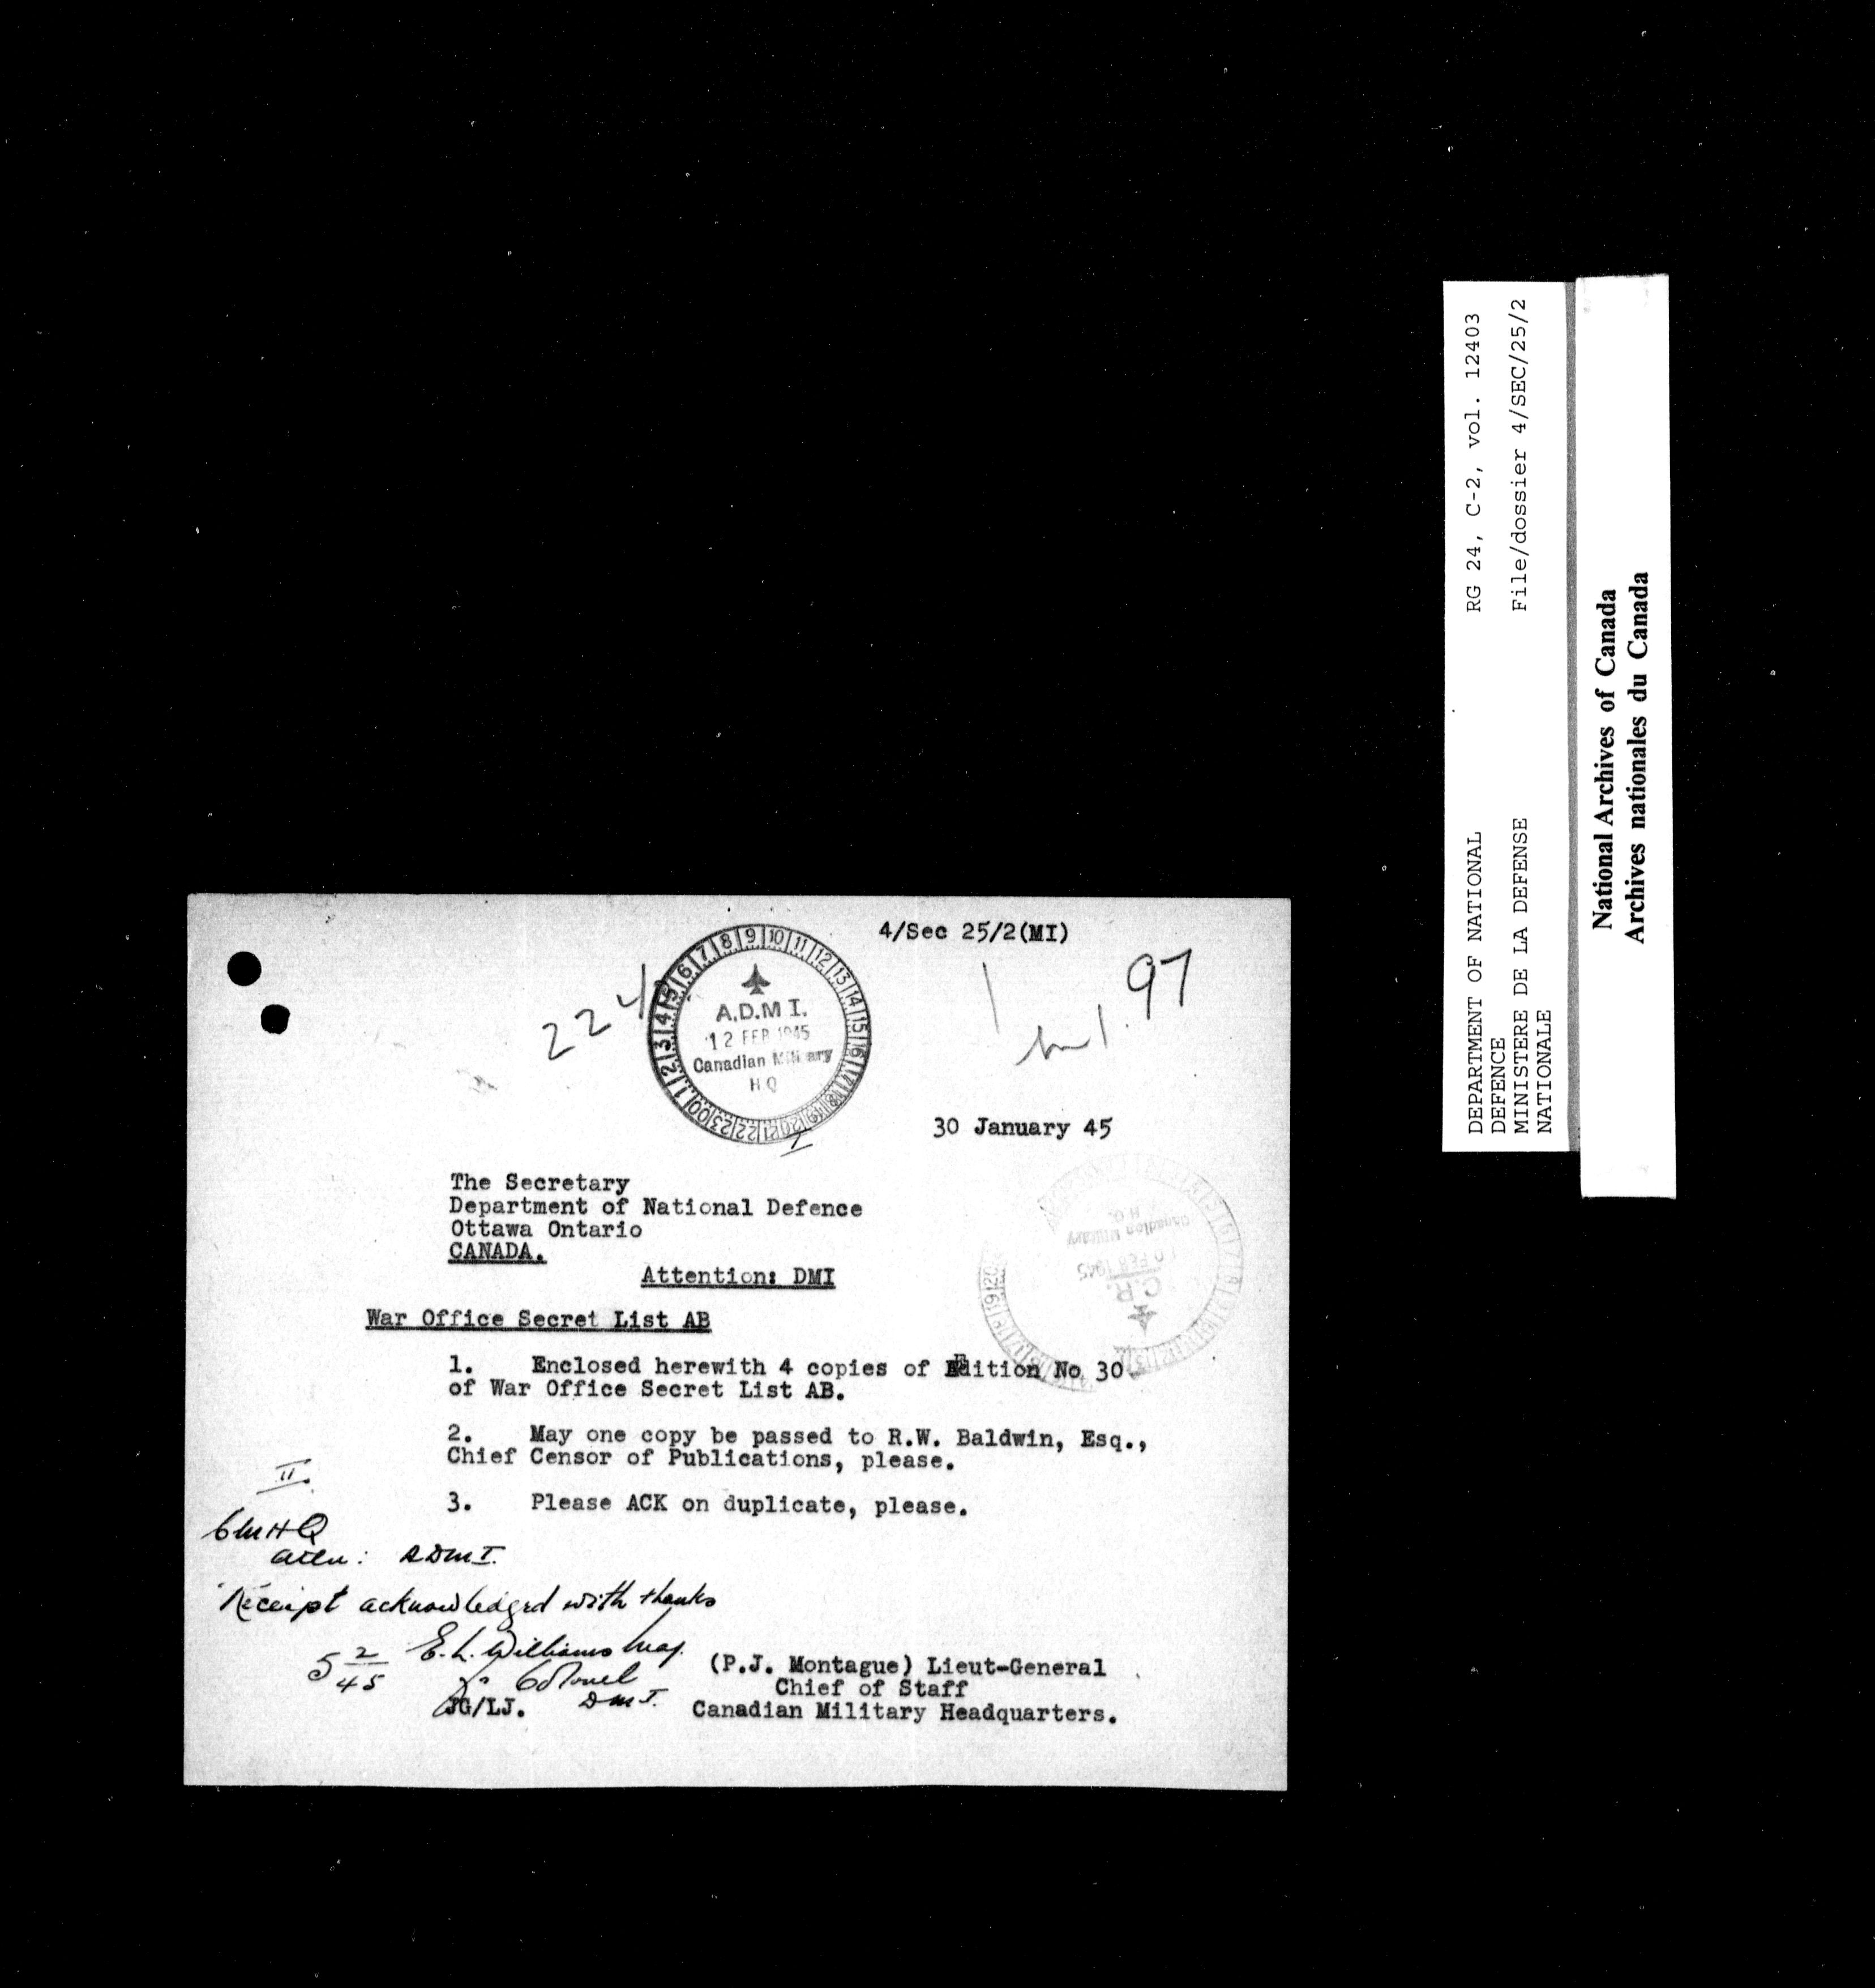 4/Sec 25/2(MI)
224
97
A.D.M I.
12 FEB 1945
Canadian Military
H Q
I
30 January 45
The Secretary
Department of National Defence
Ottawa Ontario
CANADA.
Attention: DMI
C.R.
FEB 1945
Canadian Military
H.Q.
War Office Secret List AB
1. Enclosed herewith 4 copies of Edition No 30
of War Office Secret List AB.
2. May one copy be passed to R.W. Baldwin, Esq.,
Chief Censor of Publications, please.
3. Please ACK on duplicate, please.
II.
CMHQ
Atten: ADMI.
Receipt acknowledged with thanks
5 2/45 E.L. Williams Maj.
Colonel
DMI.
JG/LJ.
(P.J. Montague) Lieut-General
Chief of Staff
Canadian Military Headquarters.
DEPARTMENT OF NATIONAL RG 24, C-2, vol. 12403
DEFENCE
MINISTERE DE LA DEFENSE File/dossier 4/SEC/25/2
NATIONALE
National Archives of Canada
Archives nationales du Canada